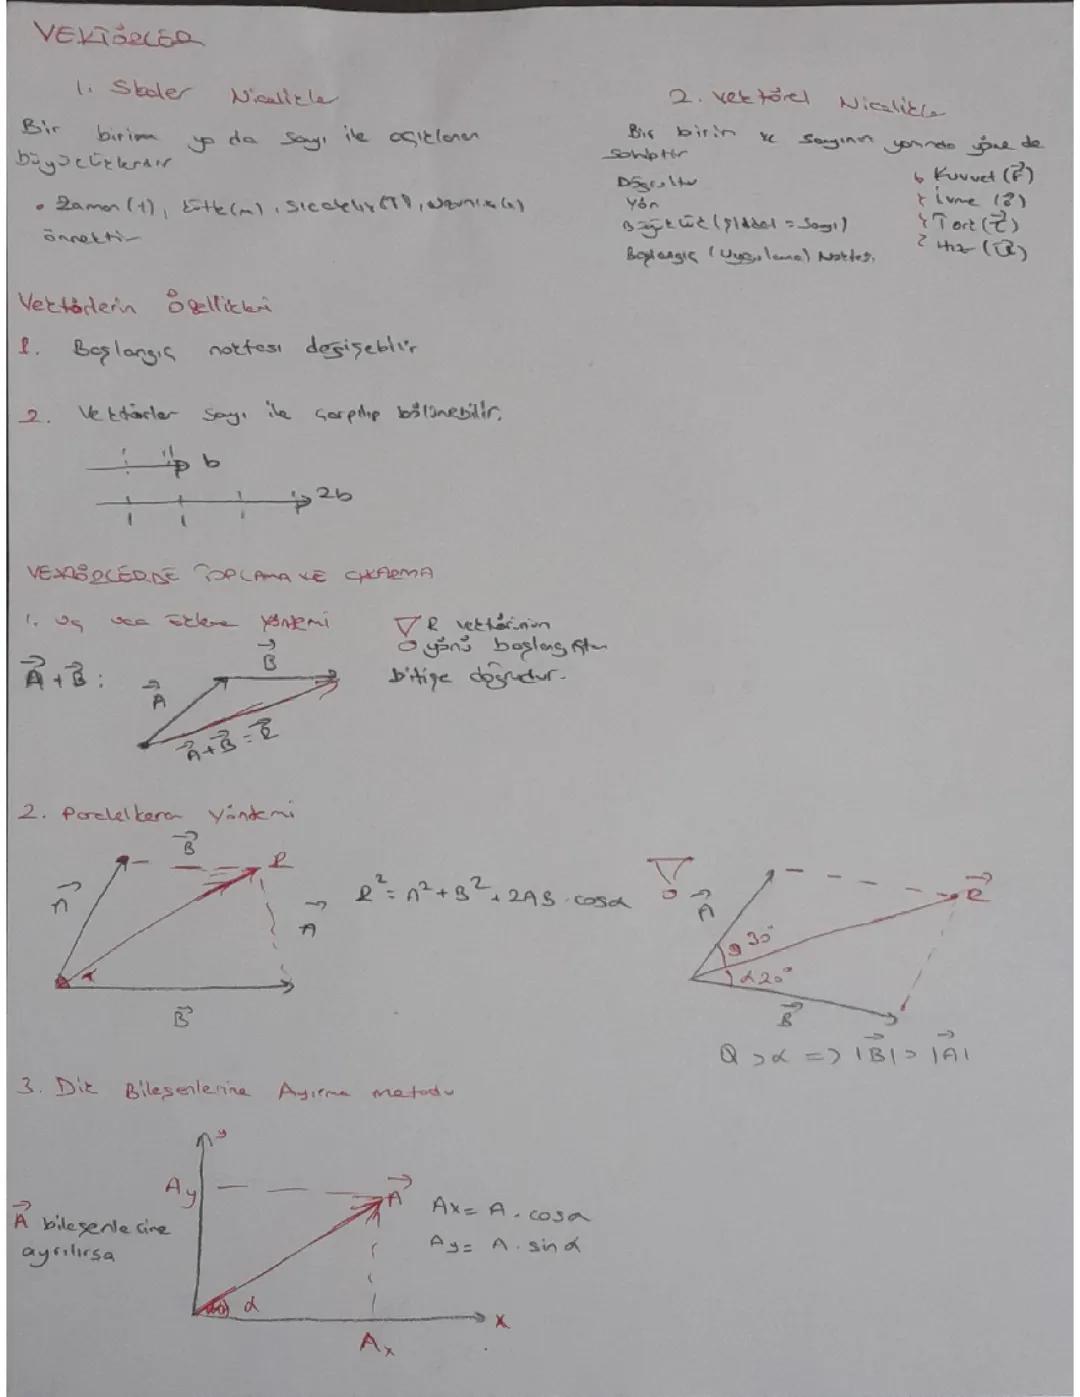 VEKTÖRLER
1. Skaler Nicelikler
Bir birim ya da sayı ile açıklanan
büyüklüklerdir
• Zaman (t), kütle (m), Sıcaklık (T),
örnektir
2. Vektörel Nicelikler
Bir birim ve sayının yanında yöne de
sahiptir
Doğrultu
Yön
Büyüklük (şiddet = Sayı)
Başlangıç (Uygulama) Noktası
Kuvvet (F⃗)
İvme (a⃗)
Tork (τ⃗)
Hız
Vektörlerin Özellikleri
1. Başlangıç noktası değişebilir
2. Vektörler sayı ile çarpılıp bölünebilir.
b
2b
VEKTÖRLERDE TOPLAMA VE ÇIKARMA
1. Uç uca Ekleme Yöntemi
A⃗ + B⃗ :
A⃗
B⃗
A⃗ + B⃗ = R⃗
R vektörünün
yönü başlangıçtan
bitişe doğrudur.
2. Paralelkenar Yöntemi
B⃗
R
A⃗
A⃗
α
B⃗
R² = A² + B² + 2AB . cosα
A⃗
R⃗
30°
α 20°
B⃗
Q > α => |B⃗| > |A⃗|
3. Dik Bileşenlerine Ayırma metodu
A⃗ bileşenlerine
ayrılırsa
y
Ay
A⃗
α
x
Ax
Ax = A . cosα
Ay = A . sinα